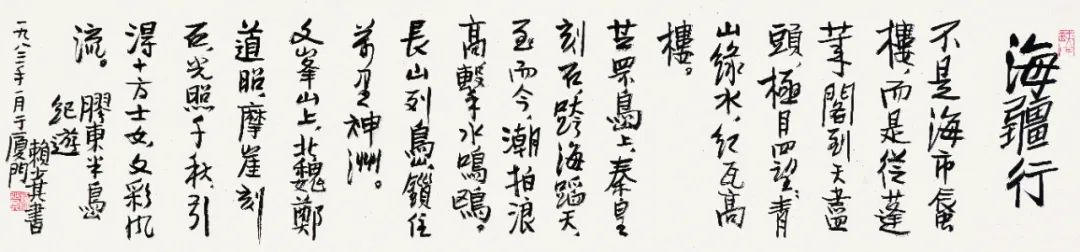 海疆行
不是海市蜃
樓，而是從蓬
莱閣到天盡
頭，極目四望，青
山綠水，紅瓦高
樓。
芝罘島上，秦皇
刻石，跨海蹈天，
至而今，潮拍浪
高，擊水鳴鷗。
長山列島，鎖住
萬里神洲。
文峯山上，北魏鄭
道昭，摩崖刻
石，光照千秋，引
得十方士女，文彩風
流。
膠東半島
紀遊
賴少其書
一九八三年一月于廈門